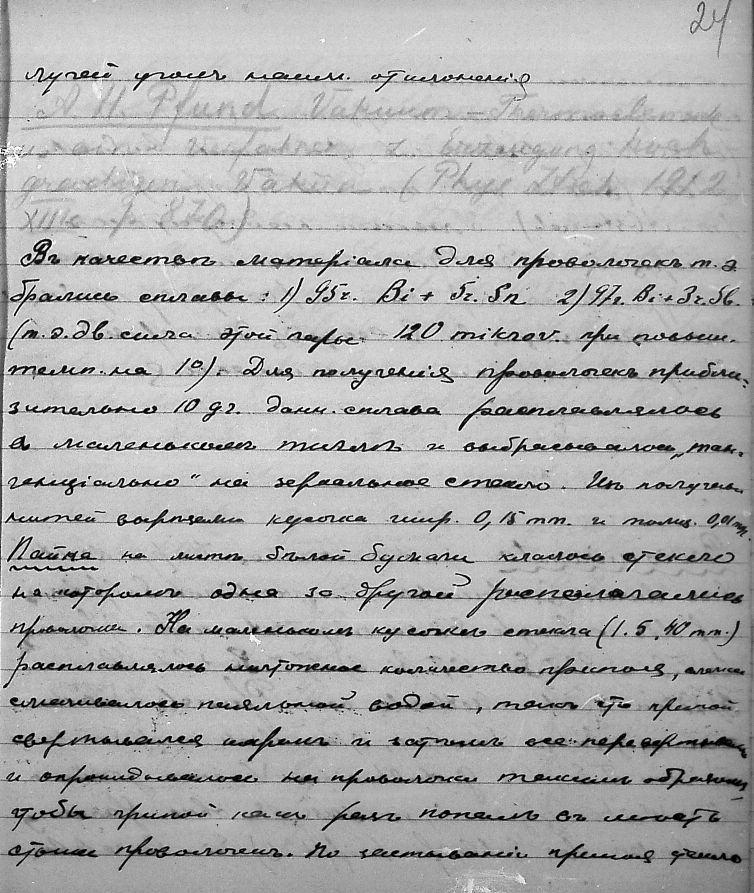 24
лучей уголъ наим. отклоненія
A. H. Pfund. Vakuum-Thermoelemente
u. eine Verfahren z. Erzeugung hoch
gradigen Vakua (Phys. Ztsch. 1912
XIII p. 870)
Въ качествѣ матеріала для проволочекъ т. э.
брались сплавы: 1) 95г. Bi + 5г. Sn 2) 97г. Bi + 3г. Sb.
(т. э. дв. сила этой пары 120 mikrov. при повыш.
темп. на 1°). Для полученія проволочекъ прибли-
зительно 10 gr. данн. сплава расплавлялось
въ маленькомъ тиглѣ и выбрасывалось „тан-
генціально" на зеркальное стекло. Изъ получен.
нитей вырѣзали кусочки шир. 0,15 mm. и толщ. 0,01 mm.
Пайка на листъ бѣлой бумаги клалось стекло
на которомъ одна за другой располагались
проволоки. На маленькомъ кусочкѣ стекла (1.5, 40 mm.)
расплавлялось ничтожное количество припоя,
смачивалось паяльной водой, такъ что припой
свертывался шаромъ и затѣмъ все перевертывалось
и опрокидывалось на проволоки такимъ образомъ
чтобы припой какъ разъ попалъ въ мѣсто
спая проволокъ. По застываніи припоя стекло